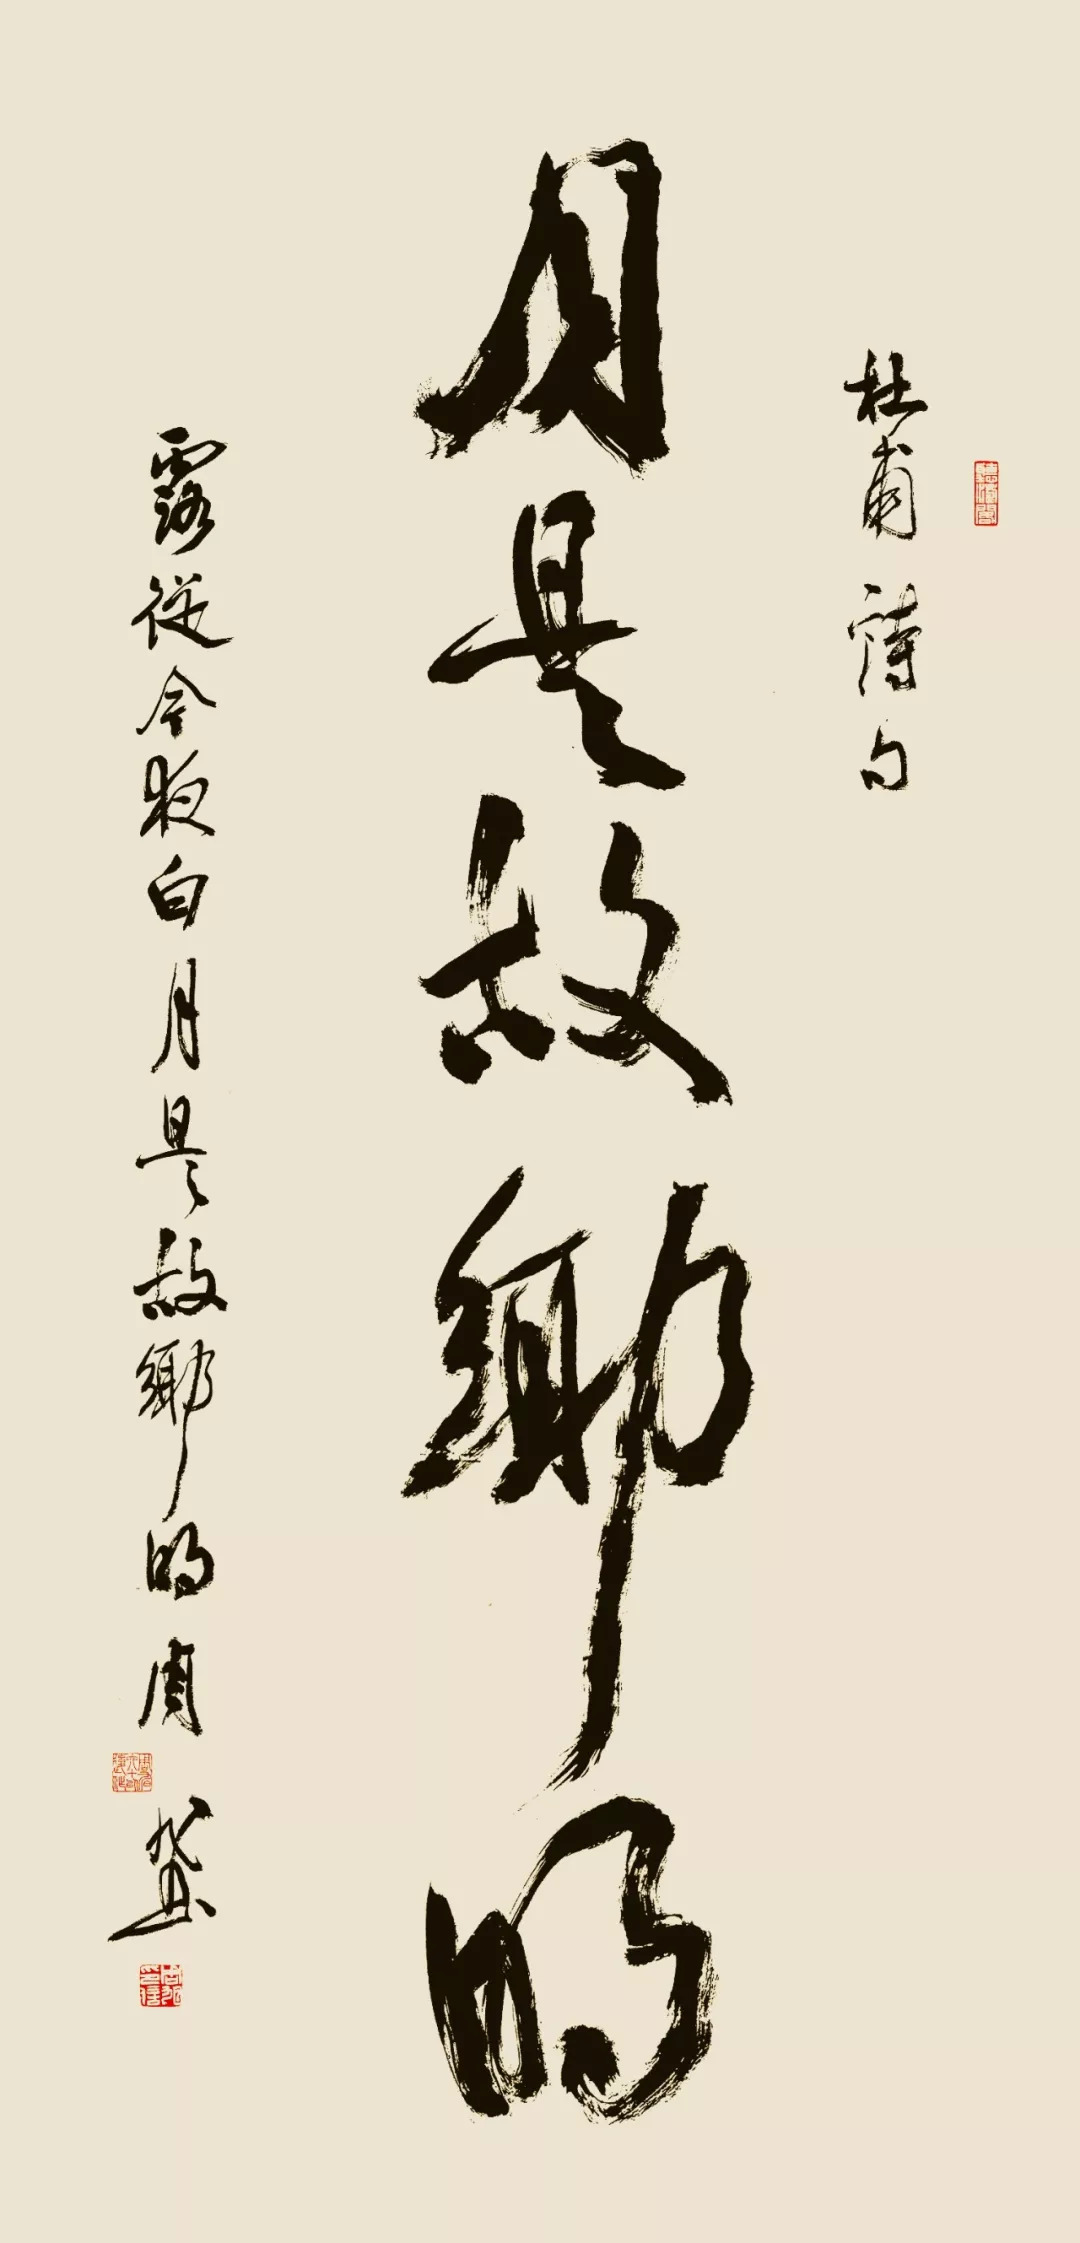 杜甫詩句
月是故鄉明
露從今夜白月是故鄉明周